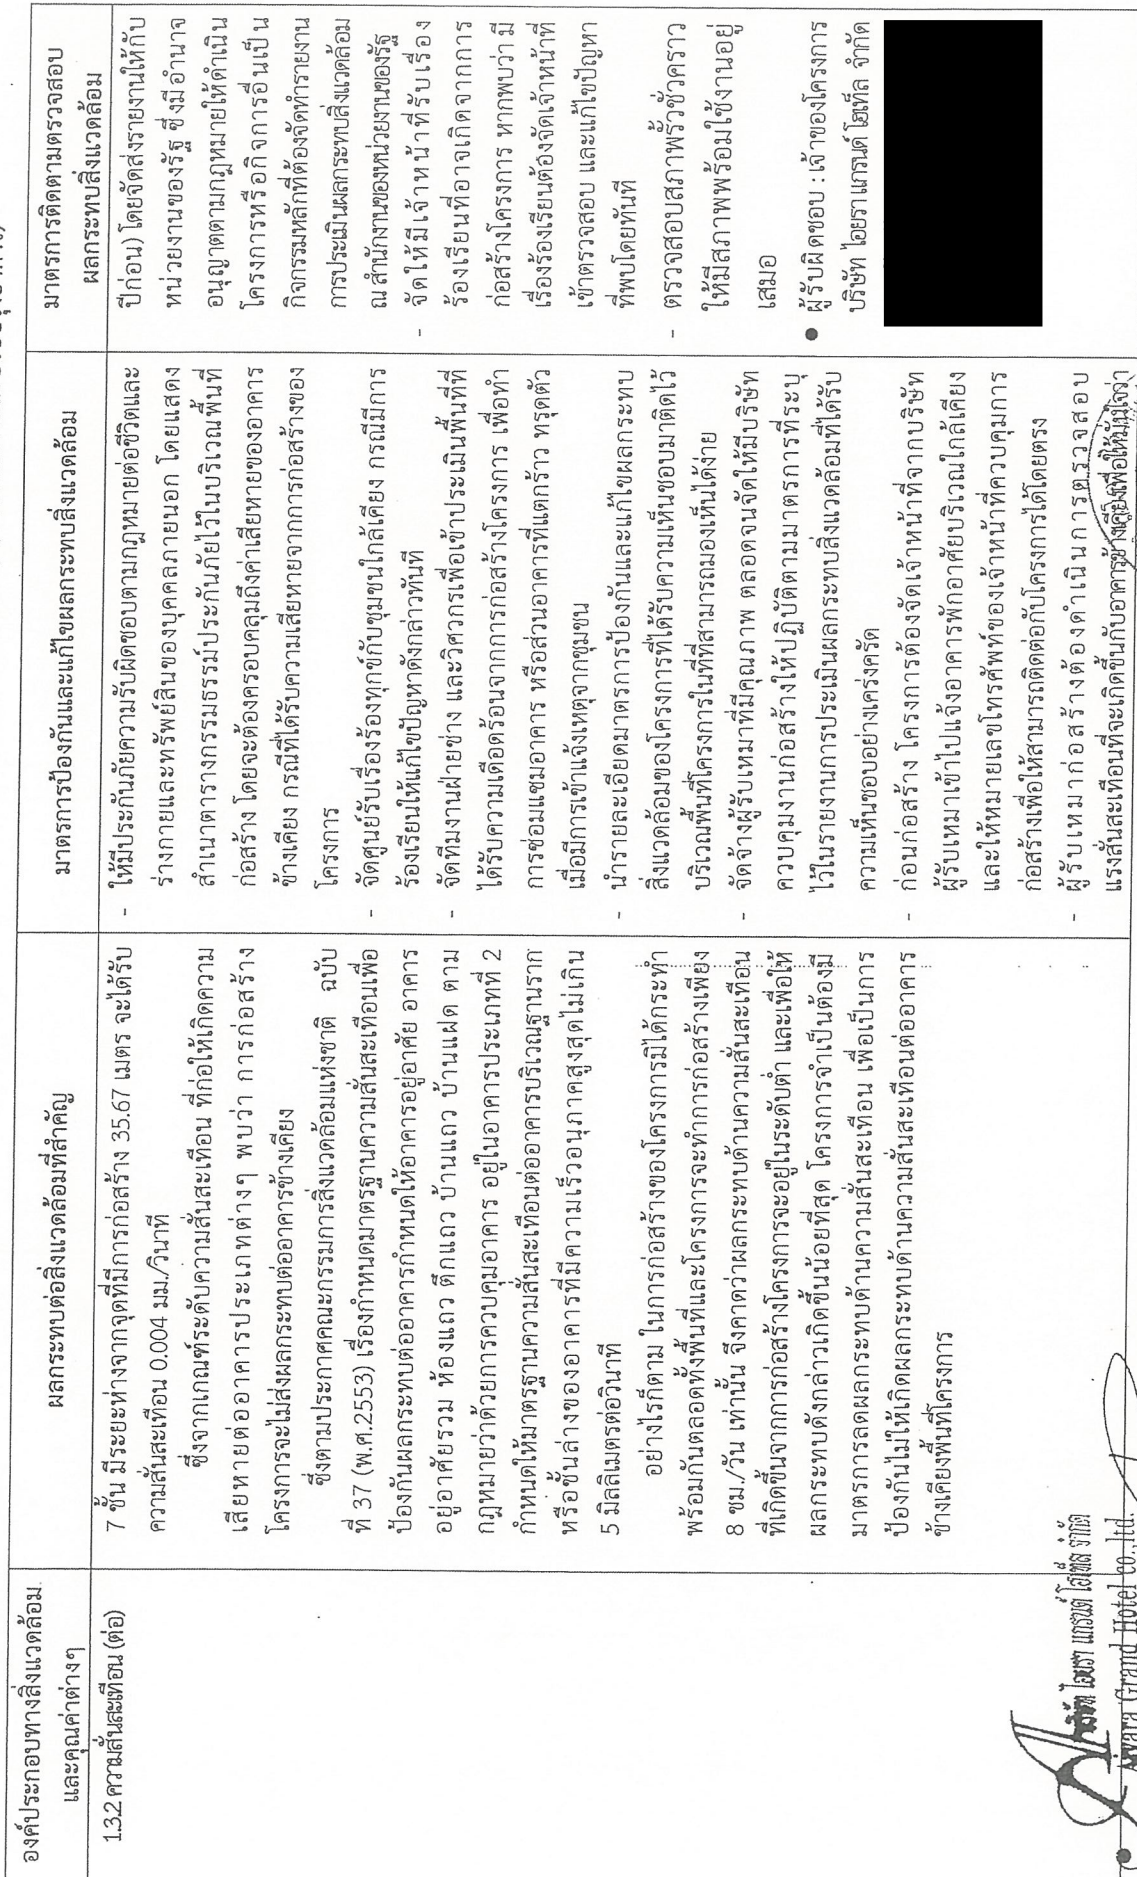 องค์ประกอบทางสิ่งแวดล้อม
และคุณค่าต่างๆ
ผลกระทบต่อสิ่งแวดล้อมที่สำคัญ
มาตรการป้องกันและแก้ไขผลกระทบสิ่งแวดล้อม
มาตรการติดตามตรวจสอบ
ผลกระทบสิ่งแวดล้อม
1.3.2 ความสั่นสะเทือน (ต่อ)
7 ชั้น มีระยะห่างจากจุดที่มีการก่อสร้าง 35.67 เมตร จะได้รับ
ความสั่นสะเทือน 0.004 มม./วินาที
ซึ่งจากเกณฑ์ระดับความสั่นสะเทือน ที่ก่อให้เกิดความ
เสียหายต่ออาคารประเภทต่างๆ พบว่า การก่อสร้าง
โครงการจะไม่ส่งผลกระทบต่ออาคารข้างเคียง
ซึ่งตามประกาศคณะกรรมการสิ่งแวดล้อมแห่งชาติ ฉบับ
ที่ 37 (พ.ศ.2553) เรื่องกำหนดมาตรฐานความสั่นสะเทือนเพื่อ
ป้องกันผลกระทบต่ออาคารกำหนดให้อาคารอยู่อาศัย อาคาร
อยู่อาศัยรวม ห้องแถว ตึกแถว บ้านแถว บ้านแฝด ตาม
กฎหมายว่าด้วยการควบคุมอาคาร อยู่ในอาคารประเภทที่ 2
กำหนดให้มาตรฐานความสั่นสะเทือนต่ออาคารบริเวณฐานราก
หรือชั้นล่างของอาคารที่มีความเร็วอนุภาคสูงสุดไม่เกิน
5 มิลลิเมตรต่อวินาที
อย่างไรก็ตาม ในการก่อสร้างของโครงการมิได้กระทำ
พร้อมกันตลอดทั้งพื้นที่และโครงการจะทำการก่อสร้างเพียง
8 ชม./วัน เท่านั้น จึงคาดว่าผลกระทบด้านความสั่นสะเทือน
ที่เกิดขึ้นจากการก่อสร้างโครงการจะอยู่ในระดับต่ำ และเพื่อให้
ผลกระทบดังกล่าวเกิดขึ้นน้อยที่สุด โครงการจำเป็นต้องมี
มาตรการลดผลกระทบด้านความสั่นสะเทือน เพื่อเป็นการ
ป้องกันไม่ให้เกิดผลกระทบด้านความสั่นสะเทือนต่ออาคาร
ข้างเคียงพื้นที่โครงการ
- ให้มีประกันภัยความรับผิดชอบตามกฎหมายต่อชีวิตและ
ร่างกายและทรัพย์สินของบุคคลภายนอก โดยแสดง
สำเนาตารางกรรมธรรม์ประกันภัยไว้ในบริเวณพื้นที่
ก่อสร้าง โดยจะต้องครอบคลุมถึงค่าเสียหายของอาคาร
ข้างเคียง กรณีที่ได้รับความเสียหายจากการก่อสร้างของ
โครงการ
- จัดศูนย์รับเรื่องร้องทุกข์กับชุมชนใกล้เคียง กรณีมีการ
ร้องเรียนให้แก้ไขปัญหาดังกล่าวทันที
- จัดทีมงานฝ่ายช่าง และวิศวกรเพื่อเข้าประเมินพื้นที่ที่
ได้รับความเดือดร้อนจากการก่อสร้างโครงการ เพื่อทำ
การซ่อมแซมอาคาร หรือส่วนอาคารที่แตกร้าว ทรุดตัว
เมื่อมีการเข้าแจ้งเหตุจากชุมชน
- นำรายละเอียดมาตรการป้องกันและแก้ไขผลกระทบ
สิ่งแวดล้อมของโครงการที่ได้รับความเห็นชอบมาติดไว้
บริเวณพื้นที่โครงการในที่ที่สามารถมองเห็นได้ง่าย
- จัดจ้างผู้รับเหมาที่มีคุณภาพ ตลอดจนจัดให้มีบริษัท
ควบคุมงานก่อสร้างให้ปฏิบัติตามมาตรการที่ระบุ
ไว้ในรายงานการประเมินผลกระทบสิ่งแวดล้อมที่ได้รับ
ความเห็นชอบอย่างเคร่งครัด
- ก่อนก่อสร้าง โครงการต้องจัดเจ้าหน้าที่จากบริษัท
ผู้รับเหมาเข้าไปแจ้งอาคารพักอาศัยบริเวณใกล้เคียง
และให้หมายเลขโทรศัพท์ของเจ้าหน้าที่ควบคุมการ
ก่อสร้างเพื่อให้สามารถติดต่อกับโครงการได้โดยตรง
- ผู้รับเหมาก่อสร้างต้องดำเนินการตรวจสอบ
แรงสั่นสะเทือนที่จะเกิดขึ้นกับอาคารข้างเคียงเพื่อให้มั่นใจว่า
ปีก่อน) โดยจัดส่งรายงานให้กับ
หน่วยงานของรัฐ ซึ่งมีอำนาจ
อนุญาตตามกฎหมายให้ดำเนิน
โครงการหรือกิจการอื่นเป็น
กิจกรรมหลักที่ต้องจัดทำรายงาน
การประเมินผลกระทบสิ่งแวดล้อม
ณ สำนักงานของหน่วยงานของรัฐ
- จัดให้มีเจ้าหน้าที่รับเรื่อง
ร้องเรียนที่อาจเกิดจากการ
ก่อสร้างโครงการ หากพบว่า มี
เรื่องร้องเรียนต้องจัดเจ้าหน้าที่
เข้าตรวจสอบ และแก้ไขปัญหา
ที่พบโดยทันที
- ตรวจสอบสภาพรั้วชั่วคราว
ให้มีสภาพพร้อมใช้งานอยู่
เสมอ
● ผู้รับผิดชอบ : เจ้าของโครงการ
บริษัท ไอยราแกรนด์ โฮเท็ล จำกัด
บริษัท ไอยรา แกรนด์ โฮเท็ล จำกัด
Aiyara Grand Hotel co.,ltd.